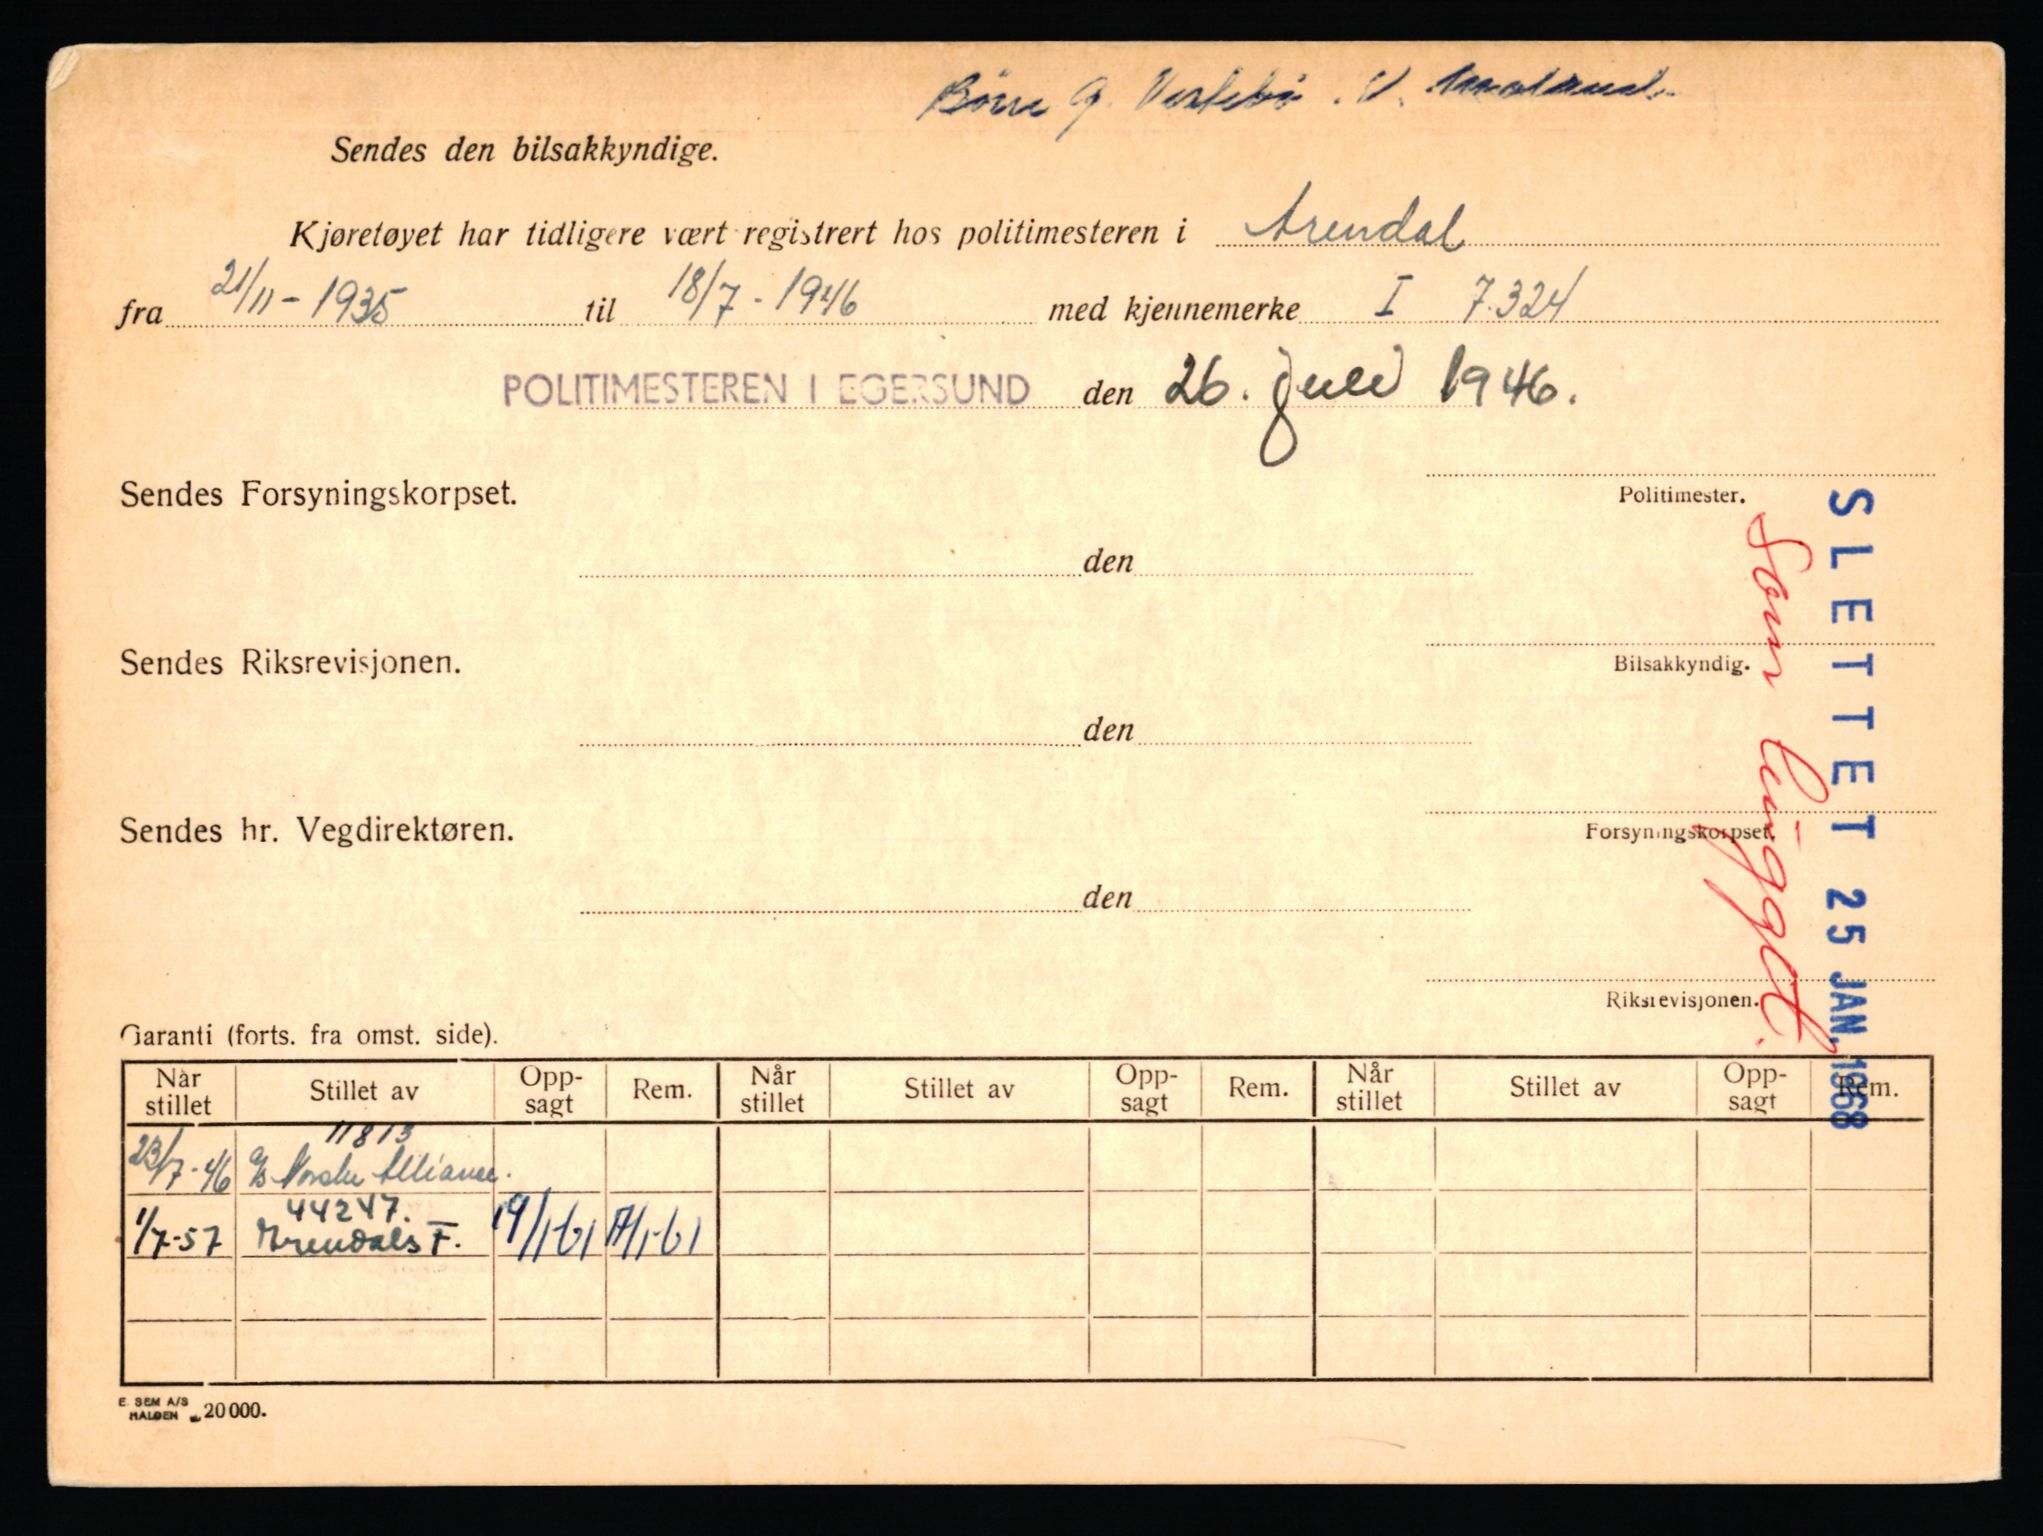 Børre G. Vestebø. V. Moland.
Sendes den bilsakkyndige.
Kjøretøyet har tidligere vært registrert hos politimesteren i Arendal
fra 21/11 - 1935 til 18/7 - 1946 med kjennemerke I 7.324
POLITIMESTEREN I EGERSUND den 26. juli 1946.
Sendes Forsyningskorpset.
Politimester.
den
Sendes Riksrevisjonen.
Bilsakkyndig.
den
Sendes hr. Vegdirektøren.
Forsyningskorpset.
den
Riksrevisjonen.
SLETTET 25 JAN. 1968
Som
Garanti (forts. fra omst. side).
Når stillet Stillet av Opp-sagt Rem. Når stillet Stillet av Opp-sagt Rem. Når stillet Stillet av Opp-sagt Rem.
11813
23/7-46 A/S Norske Alliance.
44247.
1/7-57 Arendals F. 19/1-61 17/1-61
E. SEM A/S
HALDEN 20000.